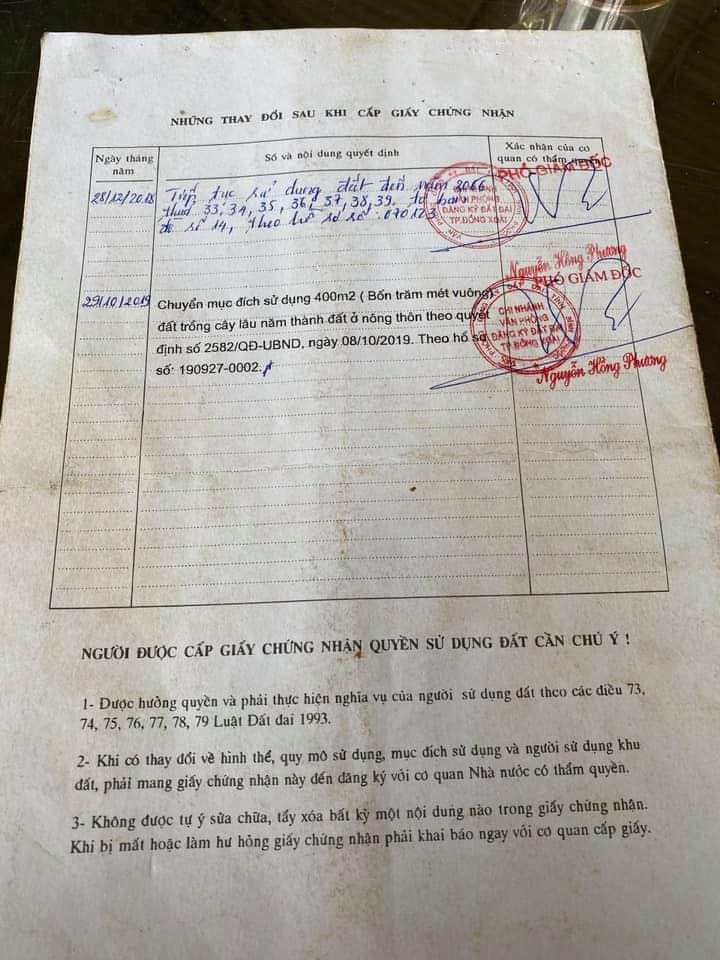 NHỮNG THAY ĐỔI SAU KHI CẤP GIẤY CHỨNG NHẬN
Ngày tháng năm
Số và nội dung quyết định
Xác nhận của cơ quan có thẩm quyền
28/12/2018
Tiếp tục sử dụng đất đến năm 2066
thửa 33, 34, 35, 36, 37, 38, 39. tờ bản
đồ số 14, theo hồ sơ số: 070123
PHÓ GIÁM ĐỐC
CHI NHÁNH
VĂN PHÒNG
ĐĂNG KÝ ĐẤT ĐAI
TP.ĐỒNG XOÀI
Nguyễn Hồng Phương
29/10/2019
Chuyển mục đích sử dụng 400m2 ( Bốn trăm mét vuông)
đất trồng cây lâu năm thành đất ở nông thôn theo quyết
định số 2582/QĐ-UBND, ngày 08/10/2019. Theo hồ sơ
số: 190927-0002.
PHÓ GIÁM ĐỐC
CHI NHÁNH
VĂN PHÒNG
ĐĂNG KÝ ĐẤT ĐAI
TP.ĐỒNG XOÀI
Nguyễn Hồng Phương
NGƯỜI ĐƯỢC CẤP GIẤY CHỨNG NHẬN QUYỀN SỬ DỤNG ĐẤT CẦN CHÚ Ý !
1- Được hưởng quyền và phải thực hiện nghĩa vụ của người sử dụng đất theo các điều 73,
74, 75, 76, 77, 78, 79 Luật Đất đai 1993.
2- Khi có thay đổi về hình thể, quy mô sử dụng, mục đích sử dụng và người sử dụng khu
đất, phải mang giấy chứng nhận này đến đăng ký với cơ quan Nhà nước có thẩm quyền.
3- Không được tự ý sửa chữa, tẩy xóa bất kỳ một nội dung nào trong giấy chứng nhận.
Khi bị mất hoặc làm hư hỏng giấy chứng nhận phải khai báo ngay với cơ quan cấp giấy.